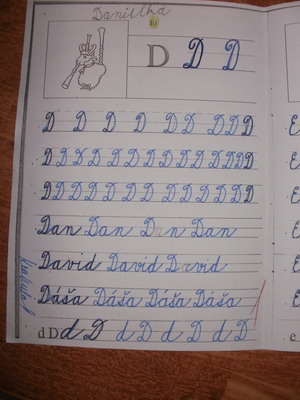 Danička
10
D D D
D D D D D D D D D
D D D D D D D D D D D D D
D D D D D D D D D D D D D
Dan Dan Dan Dan
David David David
Dáša Dáša Dáša Dáša
d D d D d D d D d D